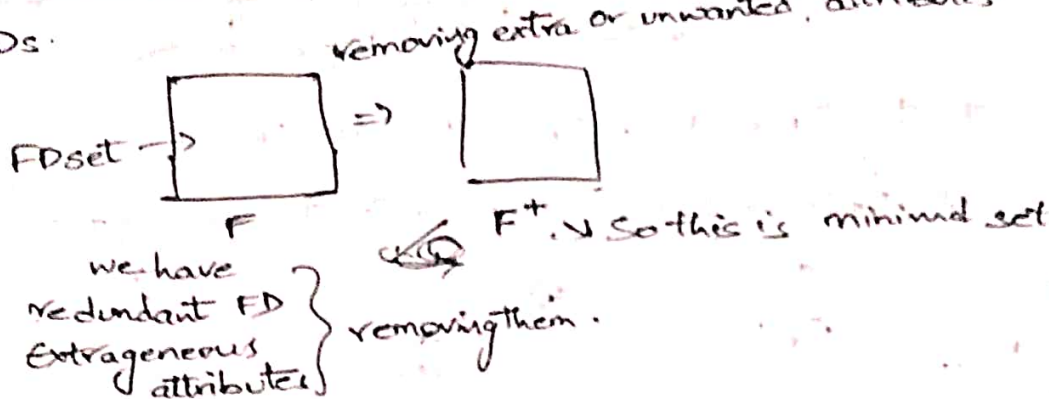 Ds.
removing extra or unwanted,
FD set → =>
F
F+. So this is minimal set
we have
redundant FD
Extrageneous
attributes
removing them.